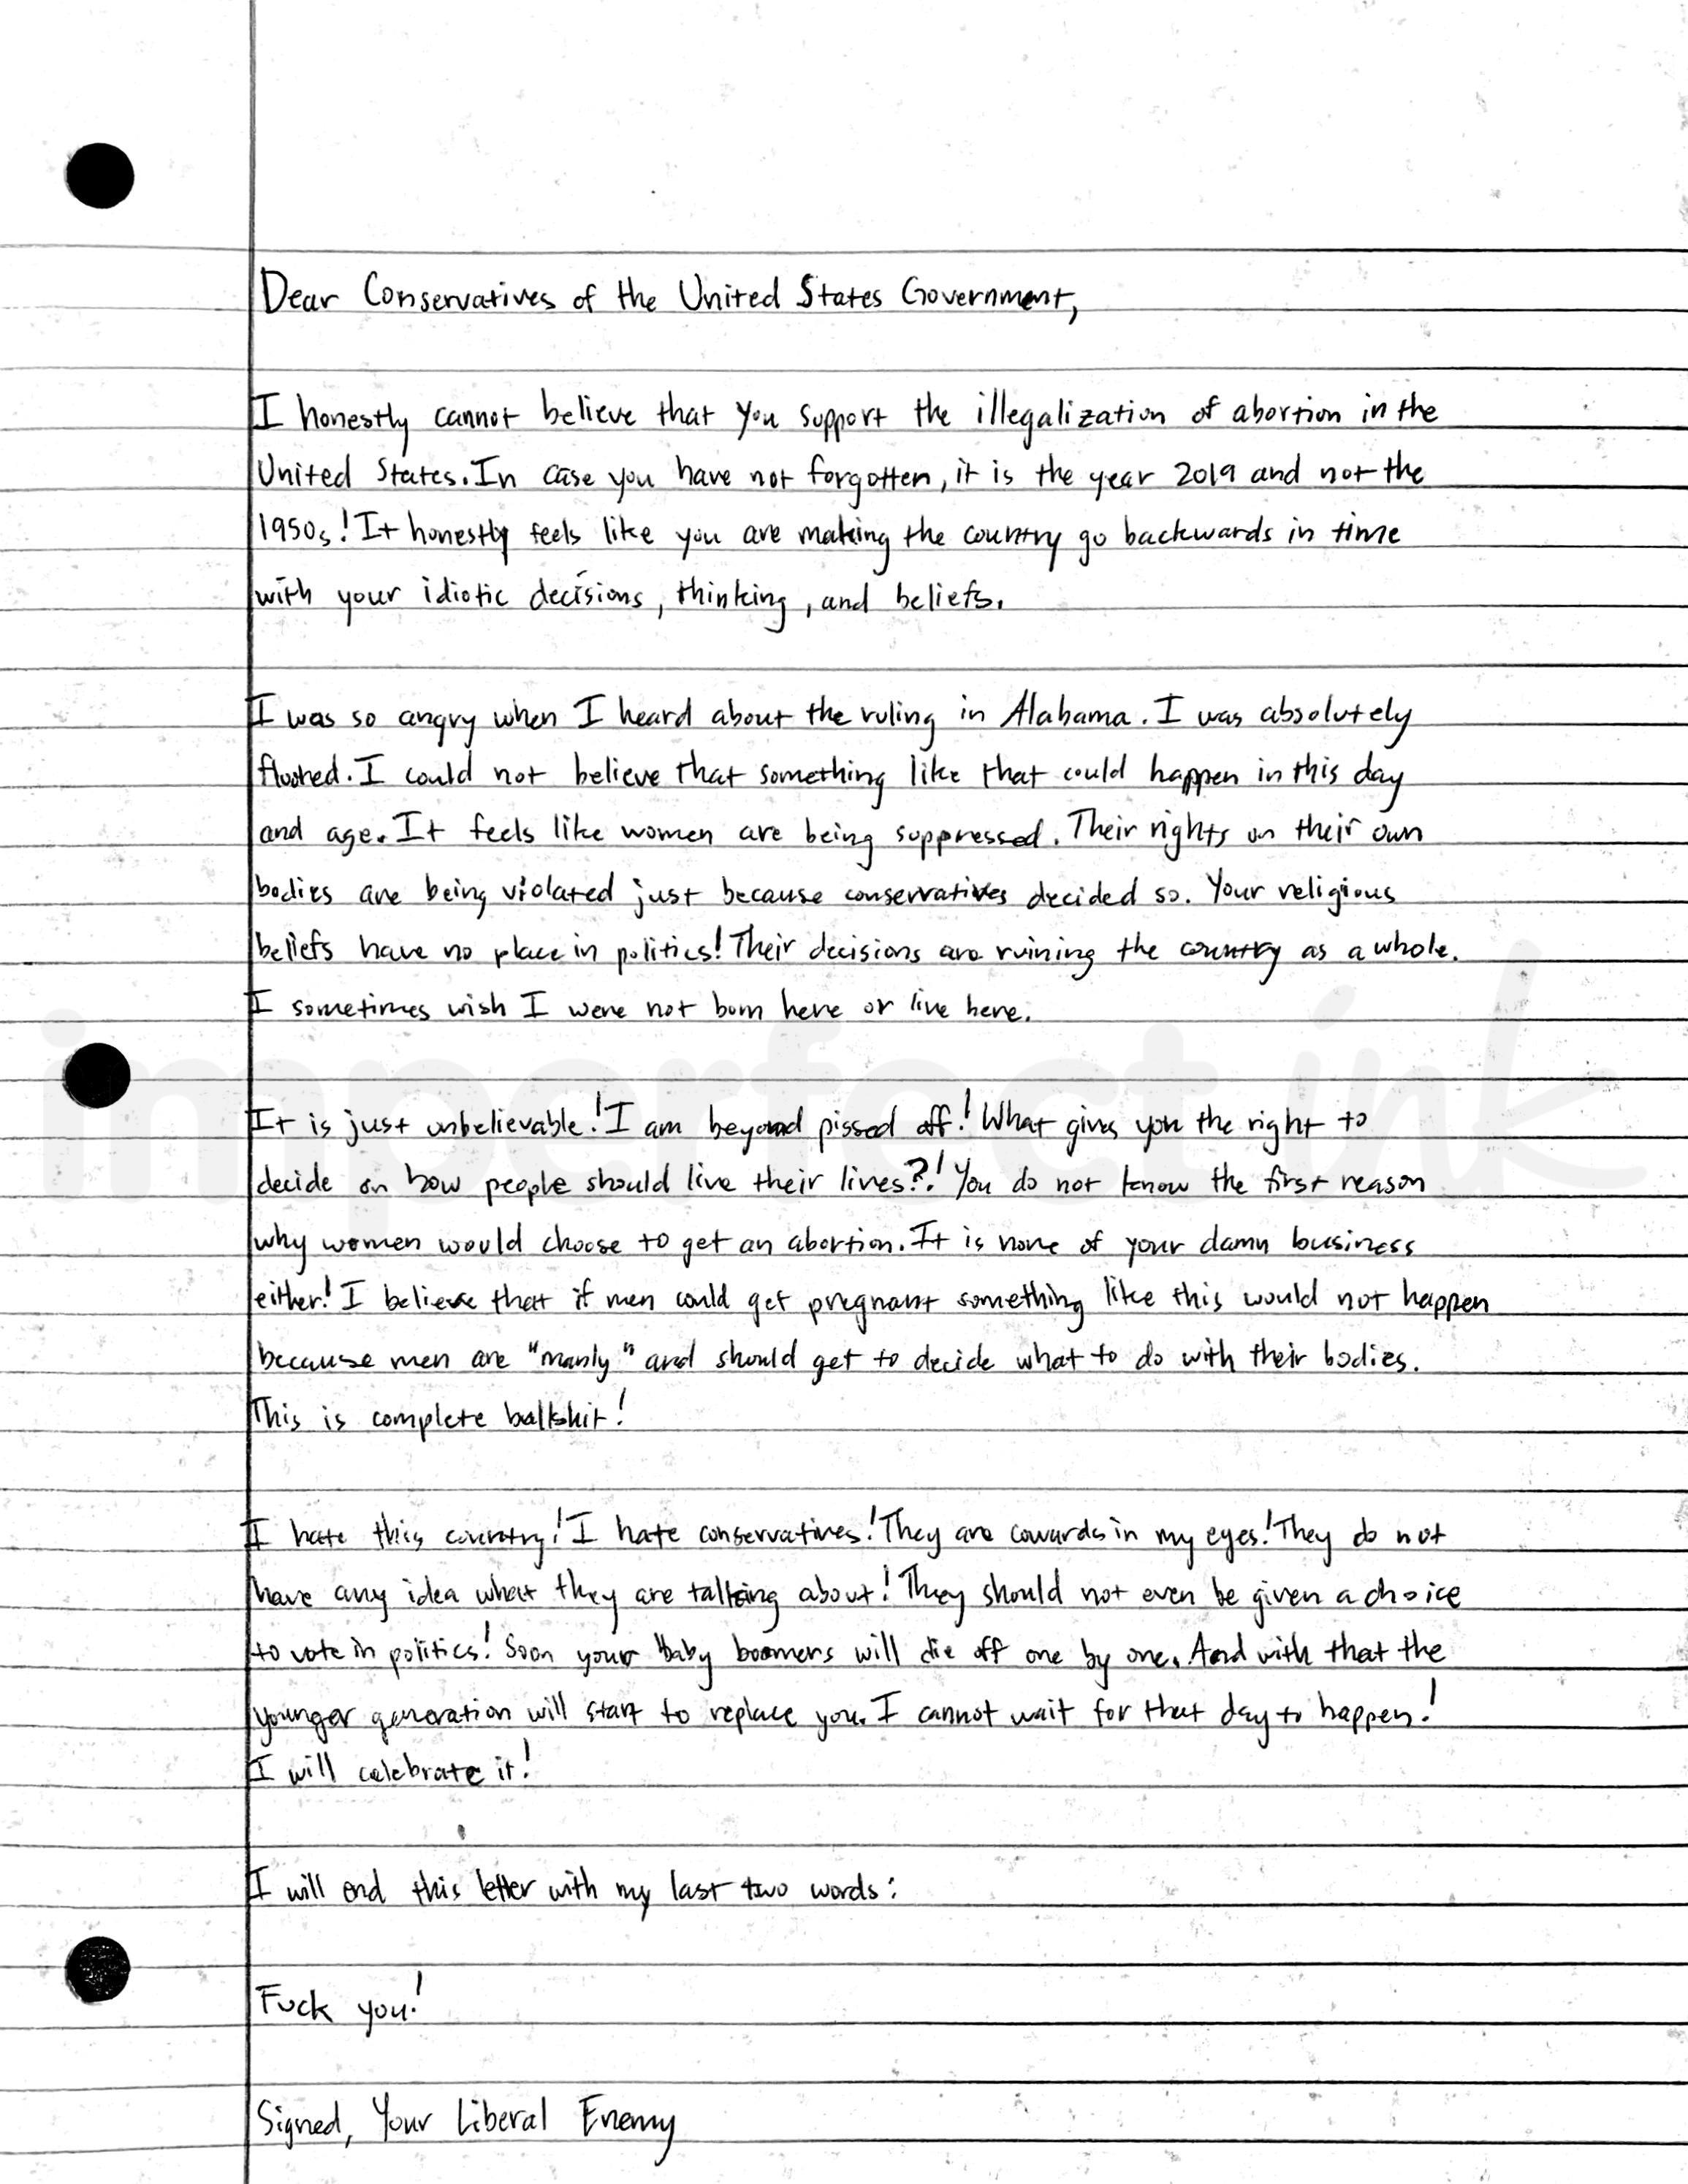 Dear Conservatives of the United States Government,
I honestly cannot believe that you support the illegalization of abortion in the
United States. In case you have not forgotten, it is the year 2019 and not the
1950s! It honestly feels like you are making the country go backwards in time
with your idiotic decisions, thinking, and beliefs.
I was so angry when I heard about the ruling in Alabama. I was absolutely
floored. I could not believe that something like that could happen in this day
and age. It feels like women are being suppressed. Their rights on their own
bodies are being violated just because conservatives decided so. Your religious
beliefs have no place in politics! Their decisions are ruining the country as a whole.
I sometimes wish I were not born here or live here.
imperfect ink
It is just unbelievable! I am beyond pissed off! What gives you the right to
decide on how people should live their lives?! You do not know the first reason
why women would choose to get an abortion. It is none of your damn business
either! I believe that if men could get pregnant something like this would not happen
because men are "manly" and should get to decide what to do with their bodies.
This is complete bullshit!
I hate this country! I hate conservatives! They are cowards in my eyes! They do not
have any idea what they are talking about! They should not even be given a choice
to vote in politics! Soon your baby boomers will die off one by one. And with that the
younger generation will start to replace you. I cannot wait for that day to happen!
I will celebrate it!
I will end this letter with my last two words:
Fuck you!
Signed, Your Liberal Enemy